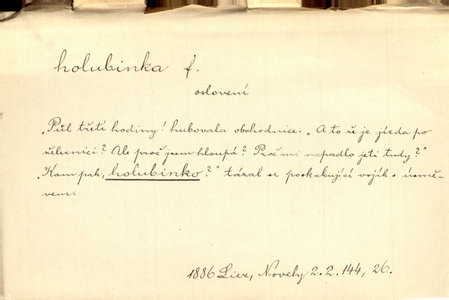 holubinka f.
oslovení
„Půl třetí hodiny! hubovala obchodnice. „A to už je jízda po
železnici? Ale proč jsem hloupá? Proč mi napadlo jeti tudy?"
„Kam pak, holubinko?" tázal se poskakující voják s úsmě-
vem.
1886 Lier, Novely 2.2.144, 26.